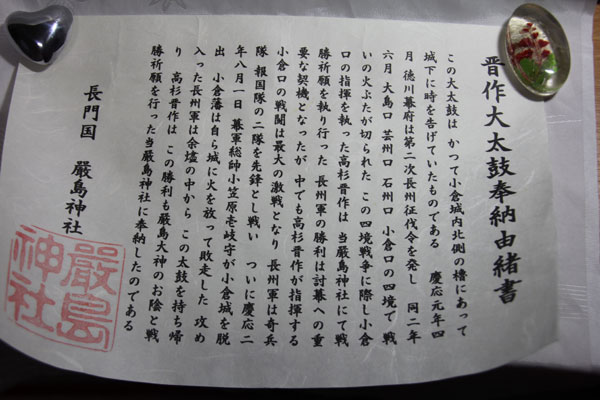 晋作大太鼓奉納由緒書
この大太鼓は かつて小倉城内北側の櫓にあって
城下に時を告げていたものである 慶応元年四
月 徳川幕府は第二次長州征伐令を発し 同二年
六月 大島口 芸州口 石州口 小倉口の四境で 戦
いの火ぶたが切られた この四境戦争に際し小倉
口の指揮を執った高杉晋作は 当厳島神社にて戦
勝祈願を執り行った 長州軍の勝利は討幕への重
要な契機となったが 中でも高杉晋作が指揮する
小倉口の戦闘は最大の激戦となり 長州軍は奇兵
隊 報国隊の二隊を先鋒とし戦い ついに慶応二
年八月一日 幕軍総帥小笠原壱岐守が小倉城を脱
出 小倉藩は自ら城に火を放って敗走した 攻め
入った長州軍は余燼の中から この太鼓を持ち帰
り 高杉晋作は この勝利も厳島大神のお陰と戦
勝祈願を行った当厳島神社に奉納したのである
長門国 厳島神社
嚴島
神社